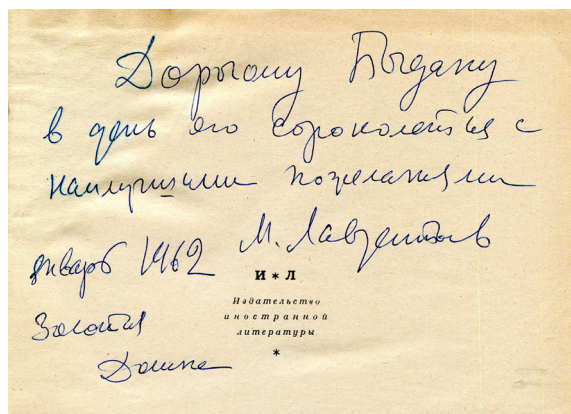 Дорогому Богдану
в день его сорокалетия с
наилучшими пожеланиями
январь 1962 М. Лаврентьев
И * Л
Издательство
иностранной
литературы
*
Золотая
Долина